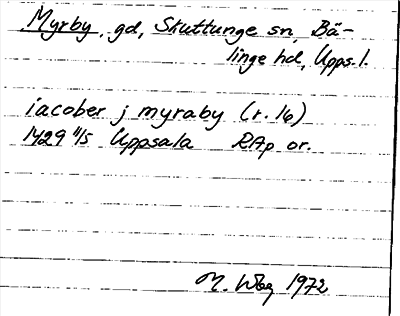 Myrby, gd, Skuttunge sn, Bä-
linge hd, Upps. l.
iacober j myraby (r. 16)
1429 11/5 Uppsala RAp or.
M. Wbg 1972